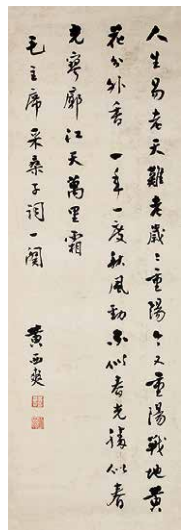 人生易老天難老歲歲重陽今又重陽戰地黃
花分外香一年一度秋風勁不似春光勝似春
光寥廓江天萬里霜
毛主席采桑子詞一闋
黄西爽